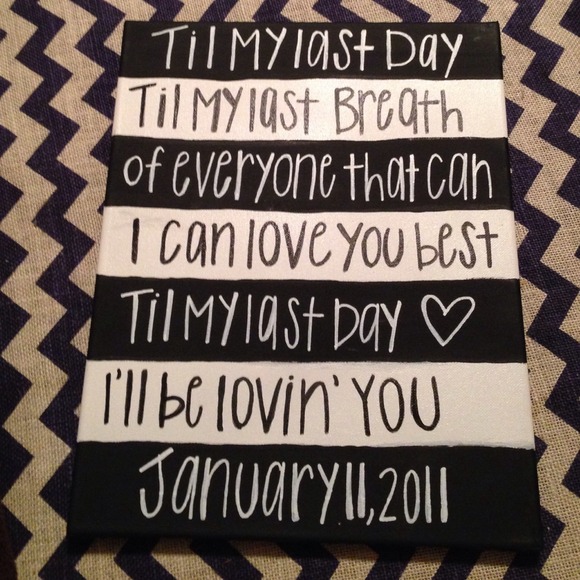 Til My last Day
Til My last Breath
of everyone that can
I can love you best
Til My last Day ♡
I'll be lovin' you
January 11, 2011